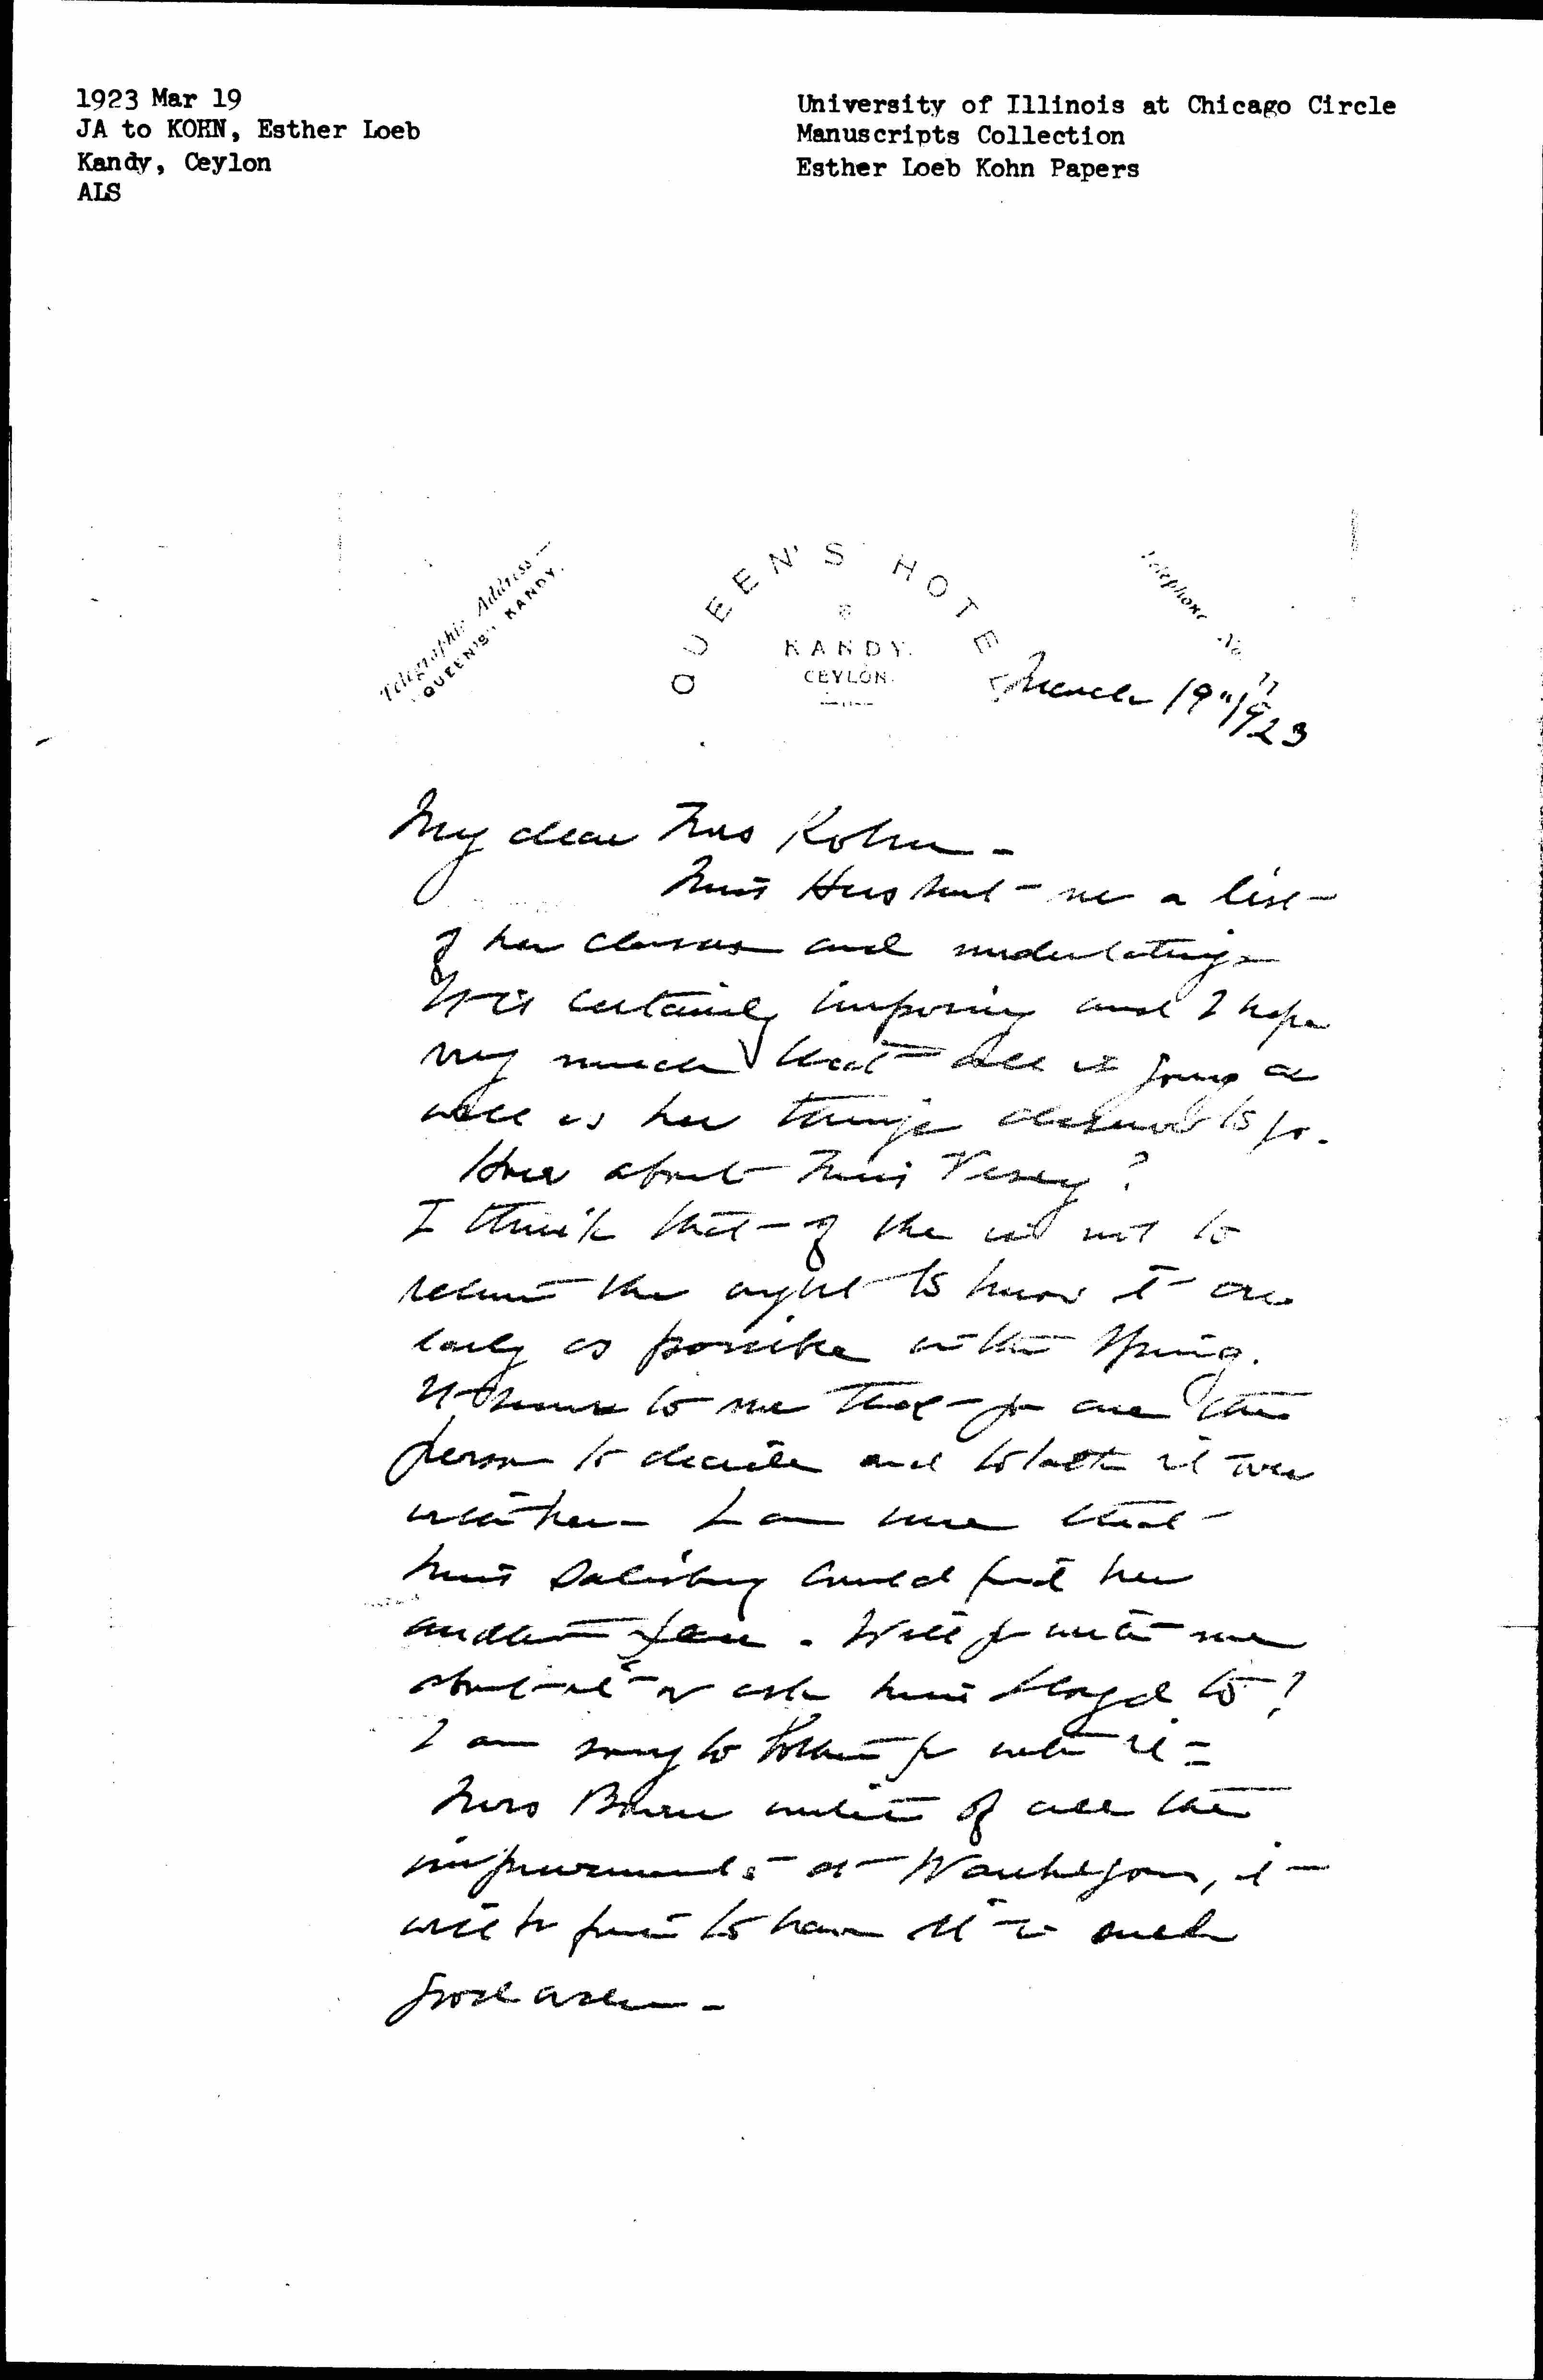 1923 Mar 19
JA to KOHN, Esther Loeb
Kandy, Ceylon
ALS
University of Illinois at Chicago Circle
Manuscripts Collection
Esther Loeb Kohn Papers
Telegraphic Address —
"QUEEN'S" KANDY.
QUEEN'S HOTEL
KANDY.
CEYLON.
Telephone No. 11
March 19" 1923
My dear Mrs Kohn –
Miss sent me a list
of her classes and undertakings
It is certainly imposing and I hope
very much that all is going as
well as her things deserve to go.
How about Miss Vesey?
I think that if she is not to
return she ought to know it as
early as possible in the Spring.
It seems to me that you are the
person to decide and to talk it over
with her – I am sure that
Miss Salisbury could find her
another place. Will you write me
about it or ask Miss Lloyd to?
I am sorry to bother you with it –
Mrs Bowen writes of all the
improvements at Waukegan, it
will be fine to have it in such
good order –